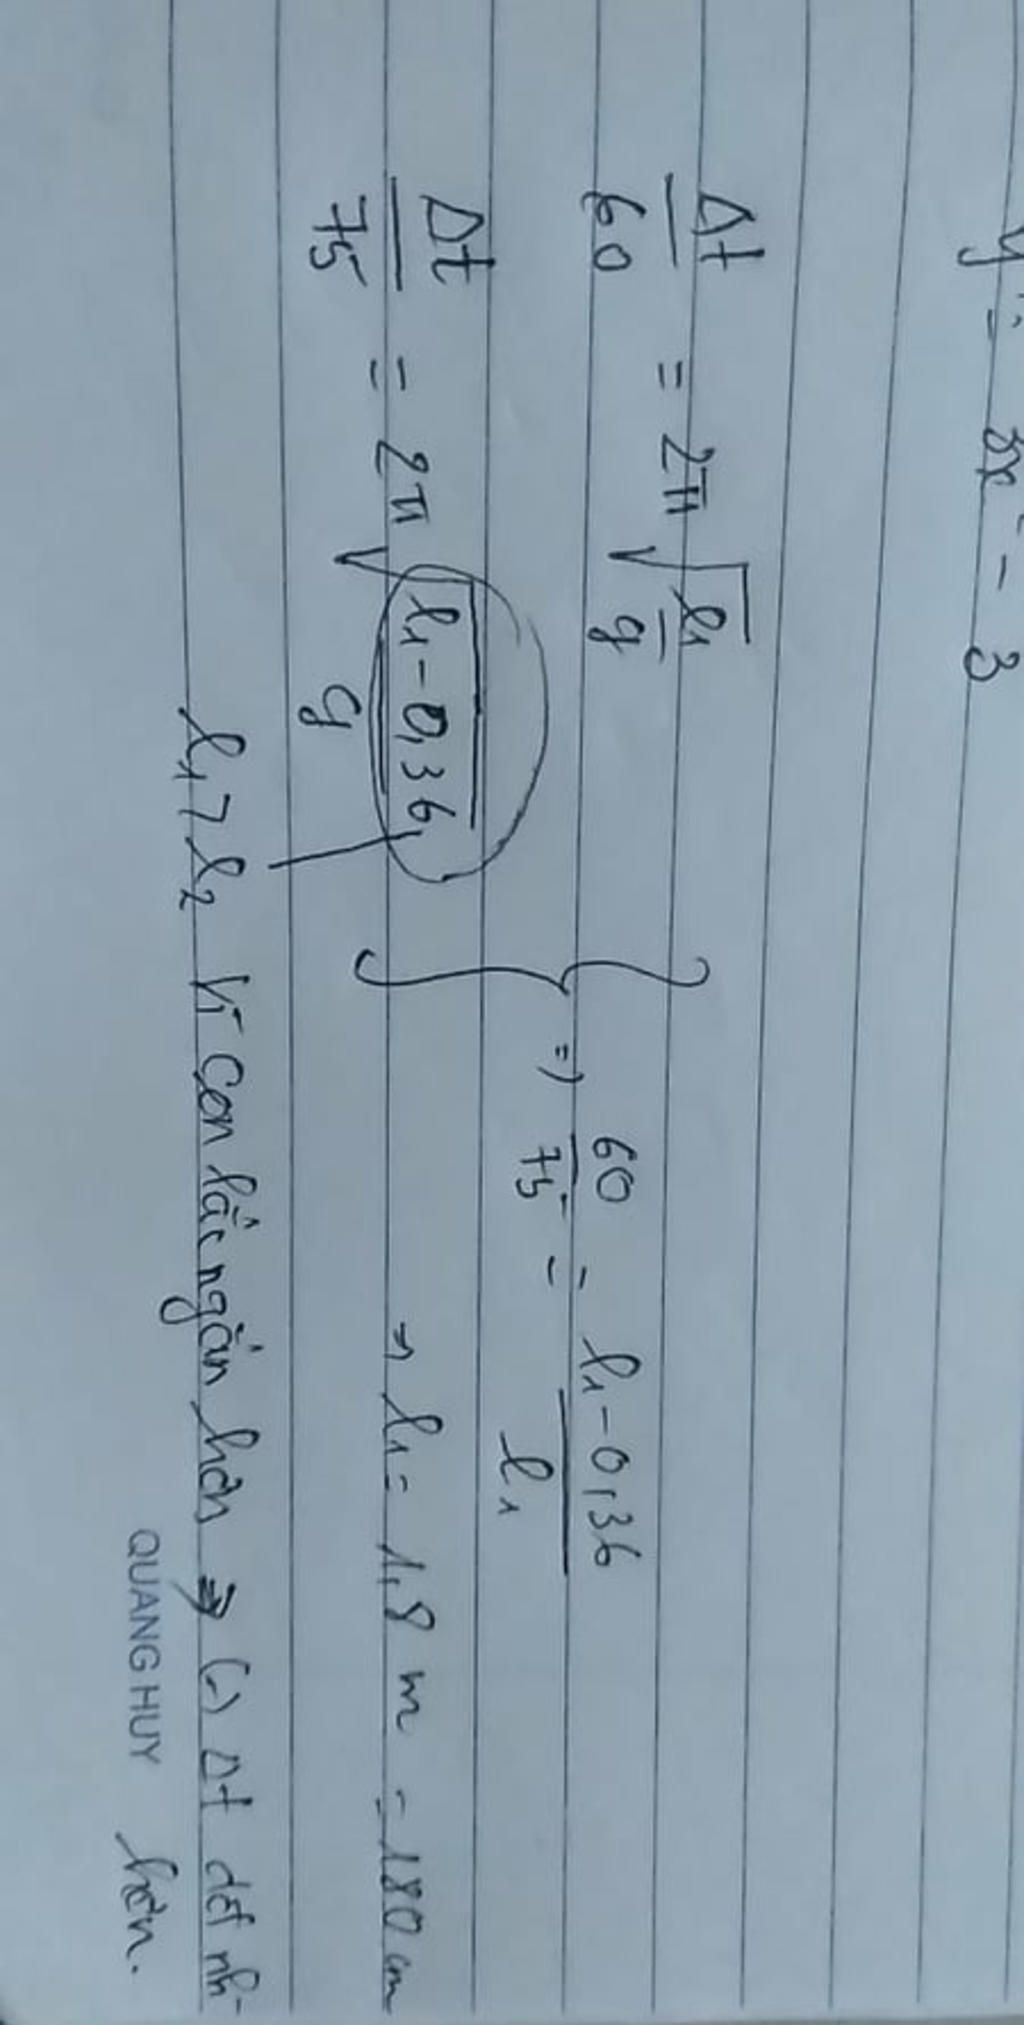 y' = 3x² - 3
Δt/60 = 2π√(l₁/g)
Δt/75 = 2π√((l₁-0,36)/g)
=> 60/75 = (l₁-0,36)/l₁
→ l₁ = 1,8 m = 180 cm
l₁ > l₂ vì con lắc ngắn hơn => (-) Δt dđ nh-
hơn.
QUANG HUY